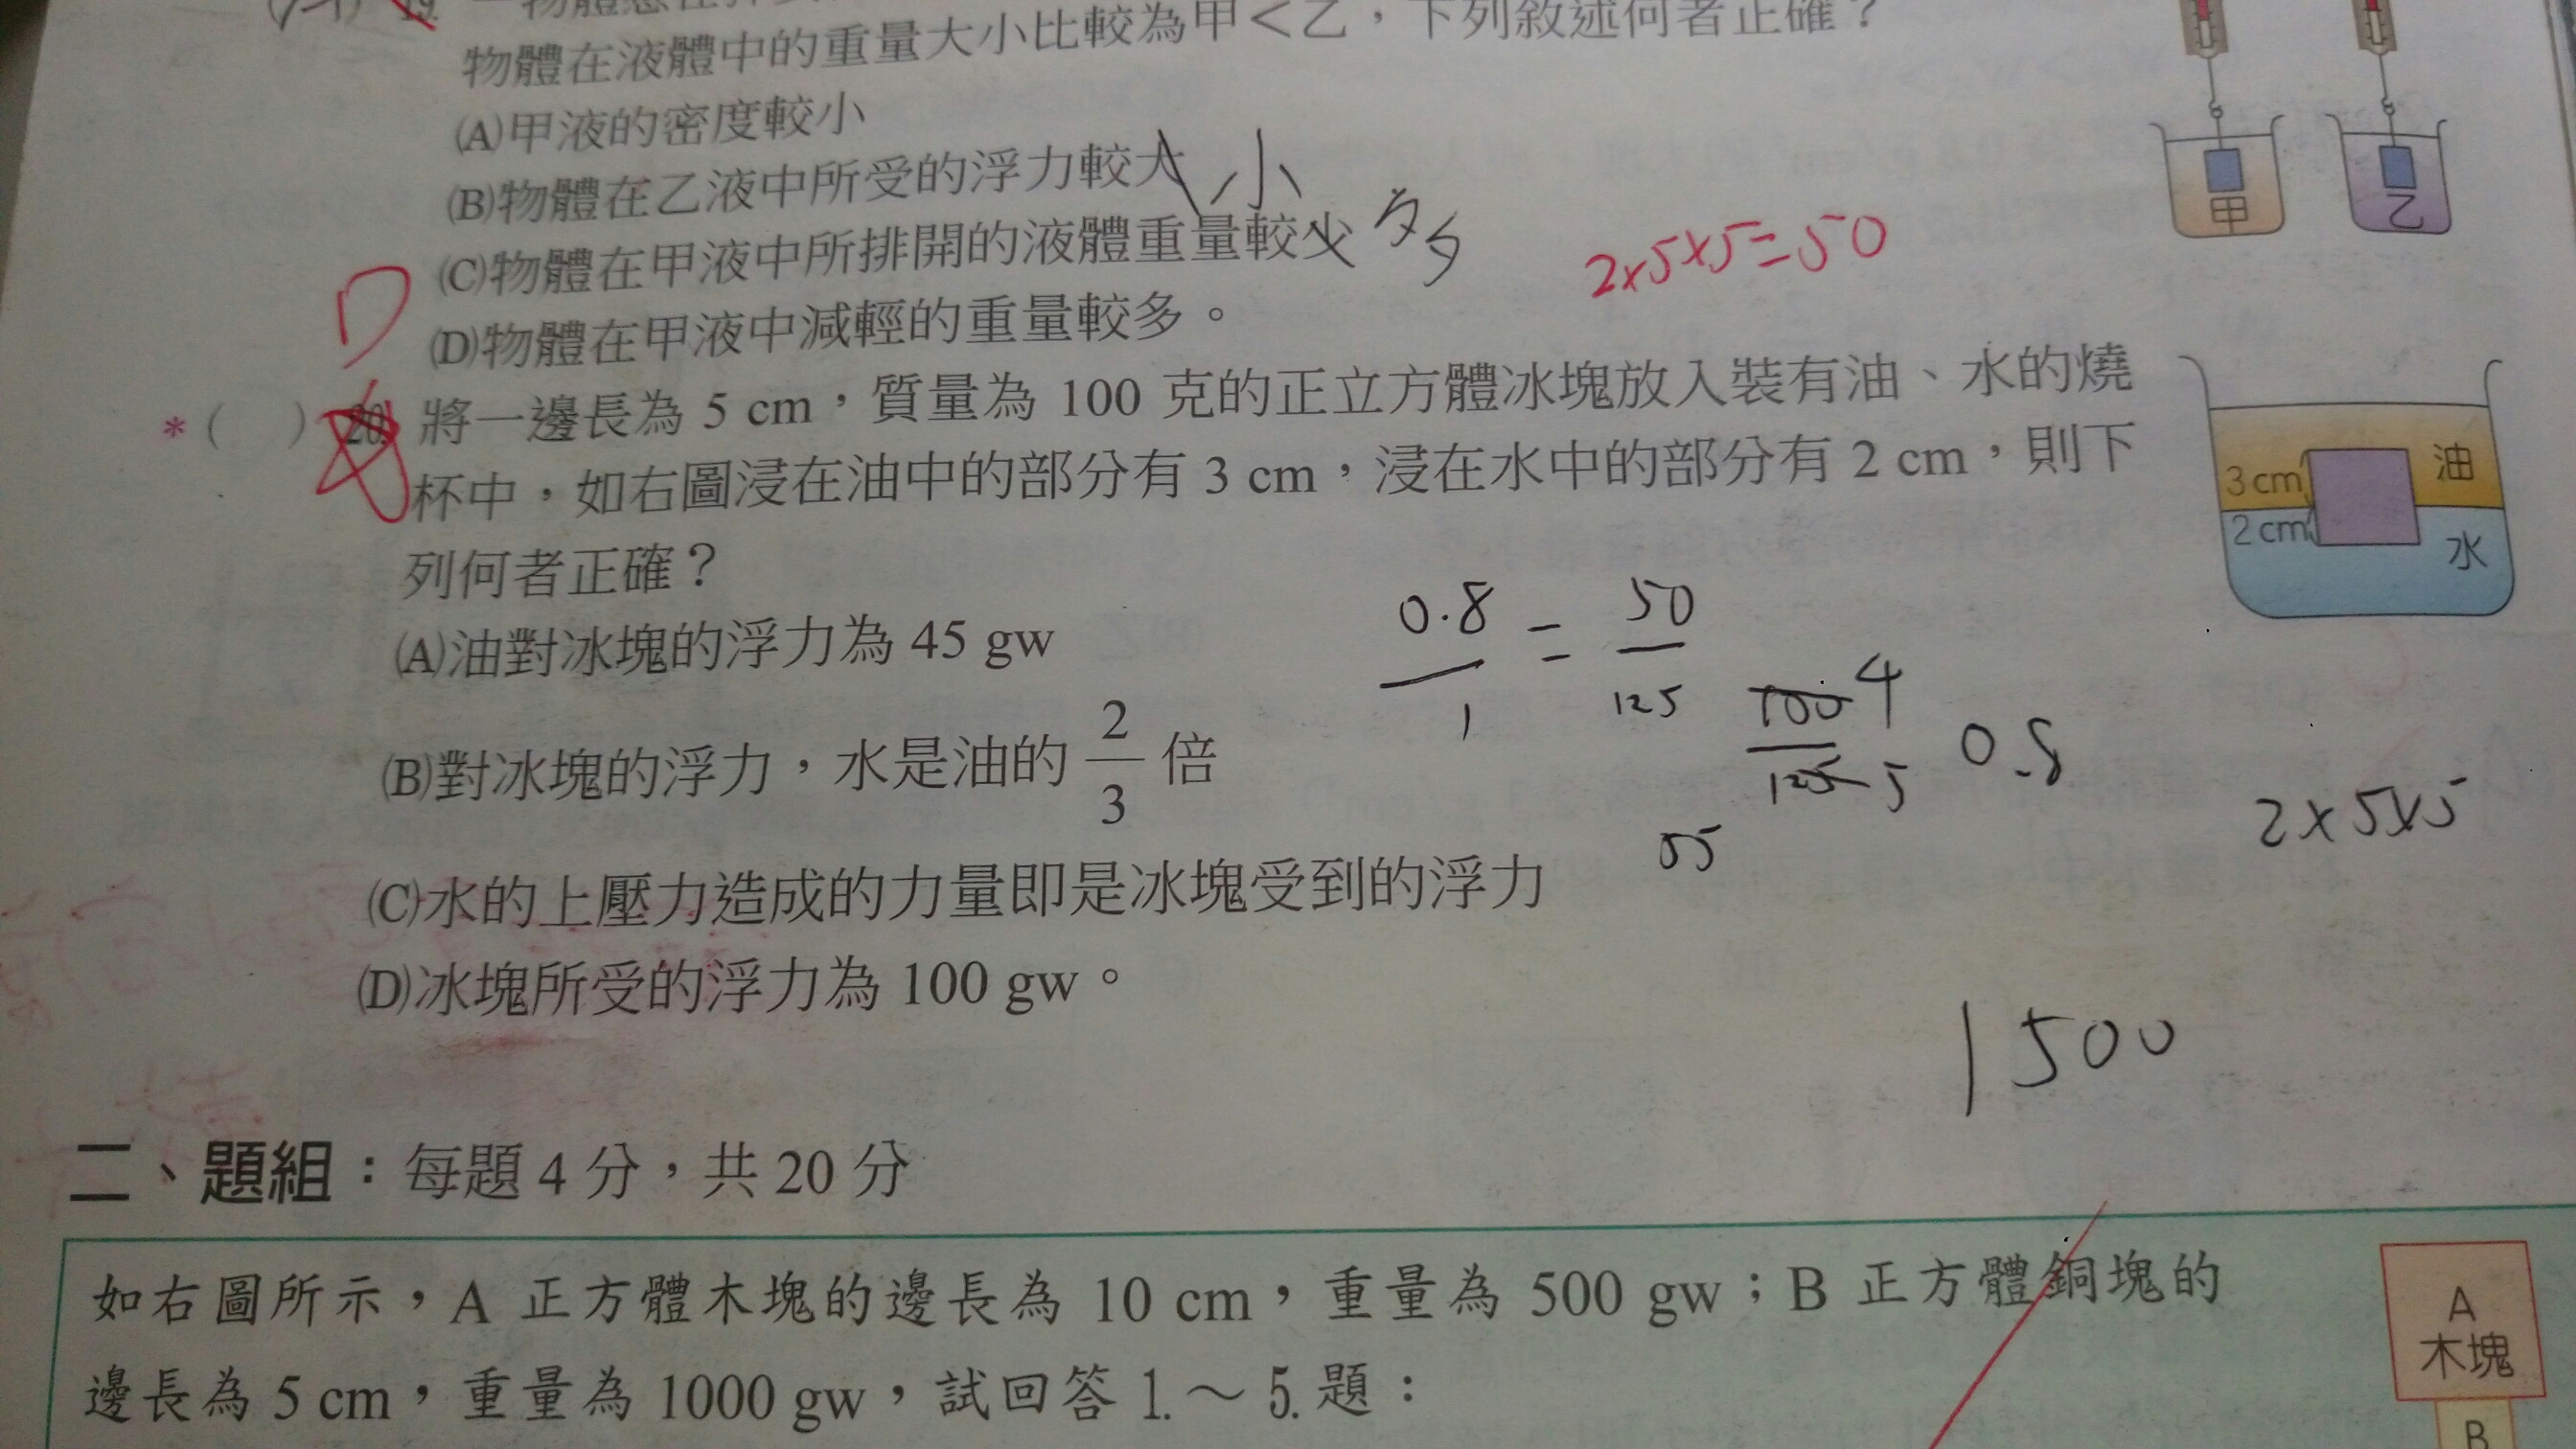 物體在液體中的重量大小比較為甲<乙，下列敘述何者正確？
(A)甲液的密度較小
(B)物體在乙液中所受的浮力較大 小
(C)物體在甲液中所排開的液體重量較少 多
(D)物體在甲液中減輕的重量較多。
甲
乙
2×5×5=50
D
*( ) 20. 將一邊長為 5 cm，質量為 100 克的正立方體冰塊放入裝有油、水的燒
杯中，如右圖浸在油中的部分有 3 cm，浸在水中的部分有 2 cm，則下
列何者正確？
3 cm
油
2 cm
水
(A)油對冰塊的浮力為 45 gw
(B)對冰塊的浮力，水是油的 2/3 倍
(C)水的上壓力造成的力量即是冰塊受到的浮力
(D)冰塊所受的浮力為 100 gw。
0.8/1 = 50/125
100/125 4/5 0.8
2×5×5
1500
二、題組：每題 4 分，共 20 分
如右圖所示，A 正方體木塊的邊長為 10 cm，重量為 500 gw；B 正方體銅塊的
邊長為 5 cm，重量為 1000 gw，試回答 1.～5. 題：
A
木塊
B